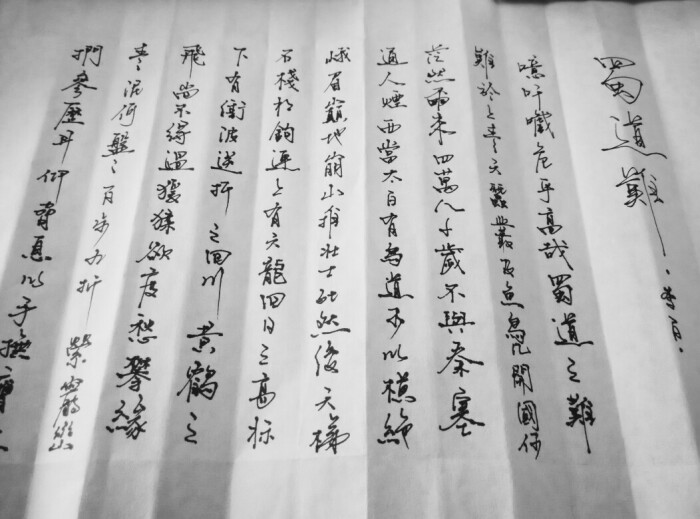 蜀道難 李白
噫吁嚱危乎高哉蜀道之難
難於上青天蠶叢及魚鳧開國何
茫然爾來四萬八千歲不與秦塞
通人煙西當太白有鳥道可以橫絕
峨眉巔地崩山摧壯士死然後天梯
石棧相鉤連上有六龍回日之高标
下有衝波逆折之回川黃鶴之
飛尚不得過猿猱欲度愁攀緣
青泥何盤々百步九折縈巖巒
捫參歷井仰脅息以手撫膺坐